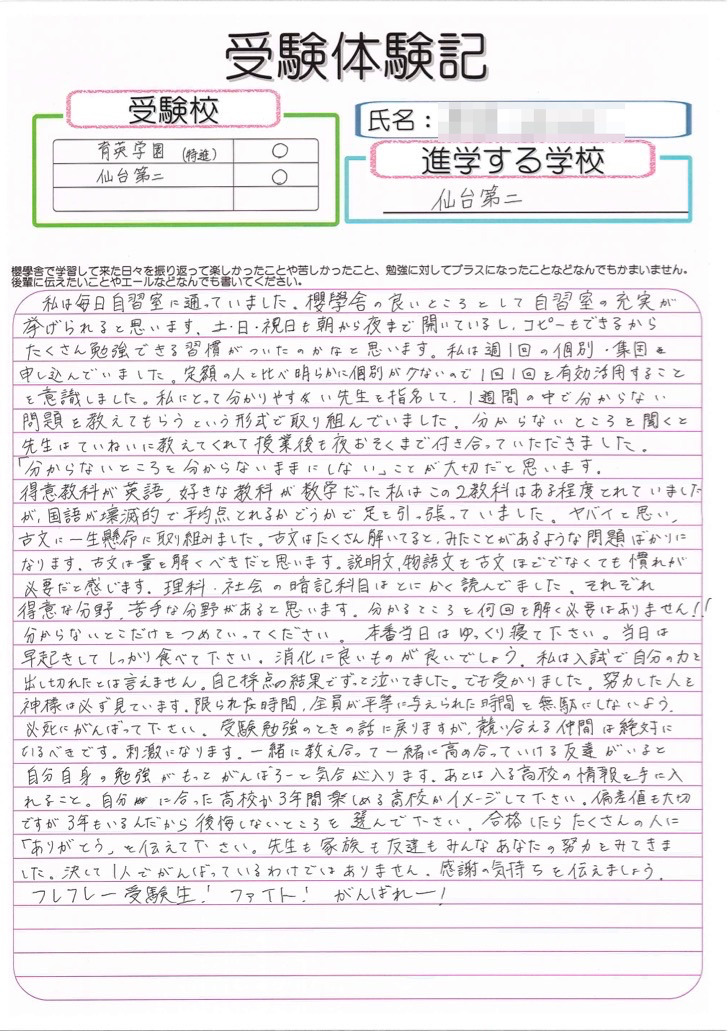 受験体験記
受験校
育英学園 (特進) ○
仙台第二 ○
氏名：
進学する学校
仙台第二
櫻學舎で学習して来た日々を振り返って楽しかったことや苦しかったこと、勉強に対してプラスになったことなどなんでもかまいません。
後輩に伝えたいことやエールなどなんでも書いてください。
私は毎日自習室に通っていました。櫻學舎の良いところとして自習室の充実が
挙げられると思います。土・日・祝日も朝から夜まで開いているし、コピーもできるから
たくさん勉強できる習慣がついたのかなと思います。私は週1回の個別・集団を
申し込んでいました。定額の人と比べ明らかに個別が少ないので1回1回を有効活用すること
を意識しました。私にとって分かりやすい先生を指名して、1週間の中で分からない
問題を教えてもらうという形式で取り組んでいました。分からないところを聞くと
先生はていねいに教えてくれて授業後も夜おそくまで付き合っていただきました。
「分からないところを分からないままにしない」ことが大切だと思います。
得意教科が英語、好きな教科が数学だった私はこの2教科はある程度とれていました
が、国語が壊滅的で平均点とれるかどうかで足を引っ張っていました。ヤバイと思い、
古文に一生懸命に取り組みました。古文はたくさん解いてると、みたことがあるような問題ばかりに
なります。古文は量を解くべきだと思います。説明文、物語文も古文ほどでなくても慣れが
必要だと感じます。理科・社会の暗記科目はとにかく読んでました。それぞれ
得意な分野、苦手な分野があると思います。分かるところを何回も解く必要はありません!!
分からないとこだけをつめていってください。 本番当日はゆっくり寝て下さい。当日は
早起きしてしっかり食べて下さい。消化に良いものが良いでしょう。私は入試で自分の力を
出し切れたとは言えません。自己採点の結果でずっと泣いてました。でも受かりました。努力した人を
神様は必ず見ています。限られた時間、全員が平等に与えられた時間を無駄にしないよう、
必死にがんばって下さい。受験勉強のときの話に戻りますが、競い合える仲間は絶対に
いるべきです。刺激になります。一緒に教え合って一緒に高め合っていける友達がいると
自分自身の勉強がもっとがんばろーと気合が入ります。あとは入る高校の情報を手に入
れること。自分に合った高校か3年間楽しめる高校かイメージして下さい。偏差値も大切
ですが3年もいるんだから後悔しないところを選んで下さい。合格したらたくさんの人に
「ありがとう」を伝えて下さい。先生も家族も友達もみんなあなたの努力をみてきま
した。決して1人でがんばっているわけではありません。感謝の気持ちを伝えましょう。
フレフレー受験生! ファイト! がんばれー!